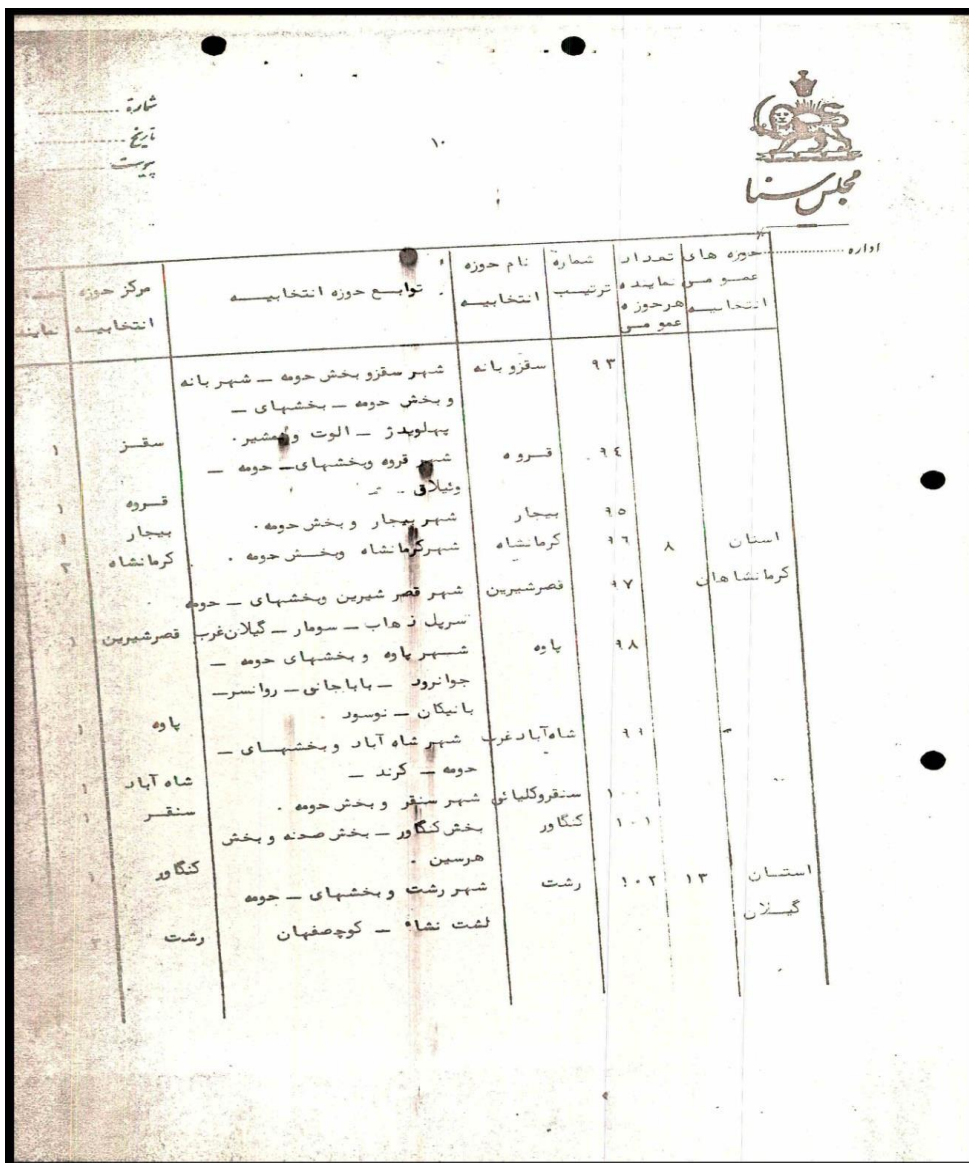 شماره
تاریخ
پیوست
۱۰
مجلس سنا
اداره
حوزه های عمومی انتخابیه
تعداد نماینده هرحوزه عمومی
شماره ترتیب
نام حوزه انتخابیه
توابع حوزه انتخابیه
مرکز حوزه انتخابیه
۹۳ سقزو بانه شهر سقزو بخش حومه ــ شهر بانه
و بخش حومه ــ بخشهای ــ
پهلویدژ ــ الوت و سقز ۱
۹٤ قروه شهر قروه وبخشهای ــ حومه ــ
وئیلاق قروه ۱
۹۵ بیجار شهر بیجار و بخش حومه . بیجار ۱
استان کرمانشاهان ۸ ۹٦ کرمانشاه شهرکرمانشاه وبخش حومه . کرمانشاه ۲
۹۷ قصرشیرین شهر قصر شیرین وبخشهای ــ حومه
سرپل ذهاب ــ سومار ــ گیلان‌غرب قصرشیرین ۱
۹۸ پاوه شهر پاوه و بخشهای حومه ــ
جوانرود ــ باباجانی ــ روانسر ــ
بانیکان ــ نوسود . پاوه ۱
۹۹ شاه‌آباد غرب شهر شاه آباد و بخشهای ــ
حومه ــ کرند ــ شاه آباد ۱
۱۰۰ سنقروکلیائی شهر سنقر و بخش حومه . سنقر ۱
۱۰۱ کنگاور بخش کنگاور ــ بخش صحنه و بخش
هرسین . کنگاور ۱
استان گیلان ۱۳ ۱۰۲ رشت شهر رشت و بخشهای ــ حومه
لشت نشاء ــ کوچصفهان رشت ۳